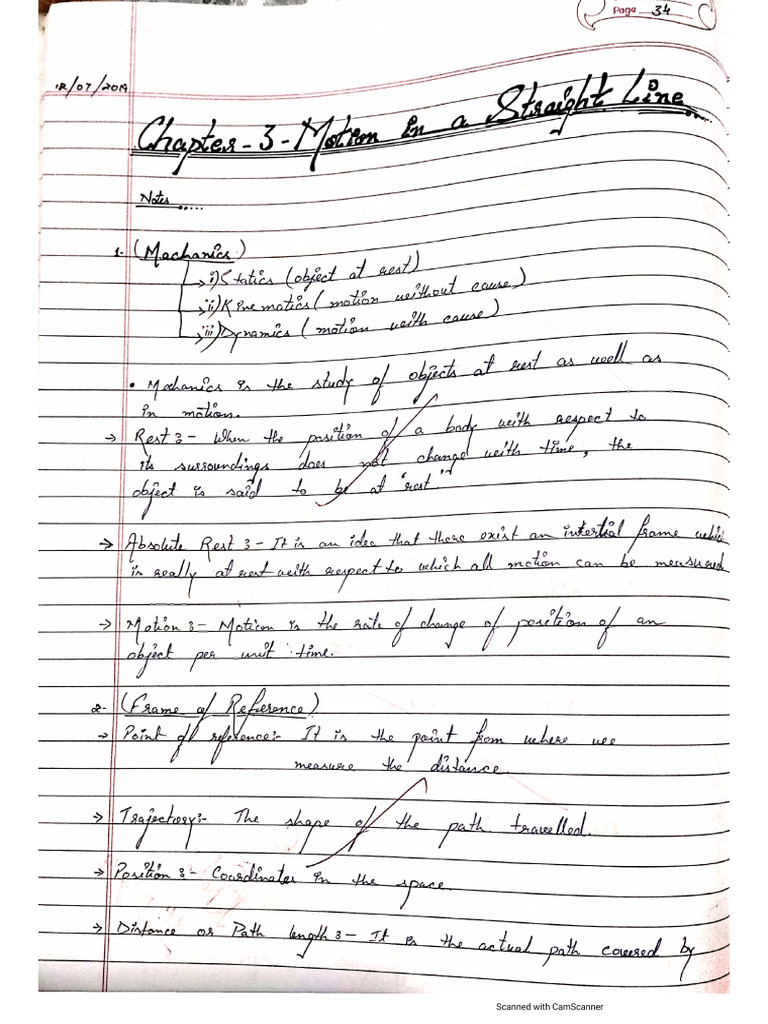 Page 34
12/07/2019
Chapter-3-Motion in a Straight Line....
Notes.....
1- (Mechanics)
→ i) Statics (object at rest)
→ ii) Kinematics (motion without cause)
→ iii) Dynamics (motion with cause)
• Mechanics is the study of objects at rest as well as
in motion.
→ Rest :- When the position of a body with respect to
its surroundings does not change with time, the
object is said to be at "rest".
→ Absolute Rest :- It is an idea that there exist an intertial frame which
is really at rest with respect to which all motion can be measured
→ Motion :- Motion is the rate of change of position of an
object per unit time.
2- (Frame of Reference)
→ Point of reference:- It is the point from where we
measure the distance.
→ Trajectory:- The shape of the path travelled.
→ Position :- Coordinates in the space.
→ Distance or Path length :- It is the actual path covered by
Scanned with CamScanner